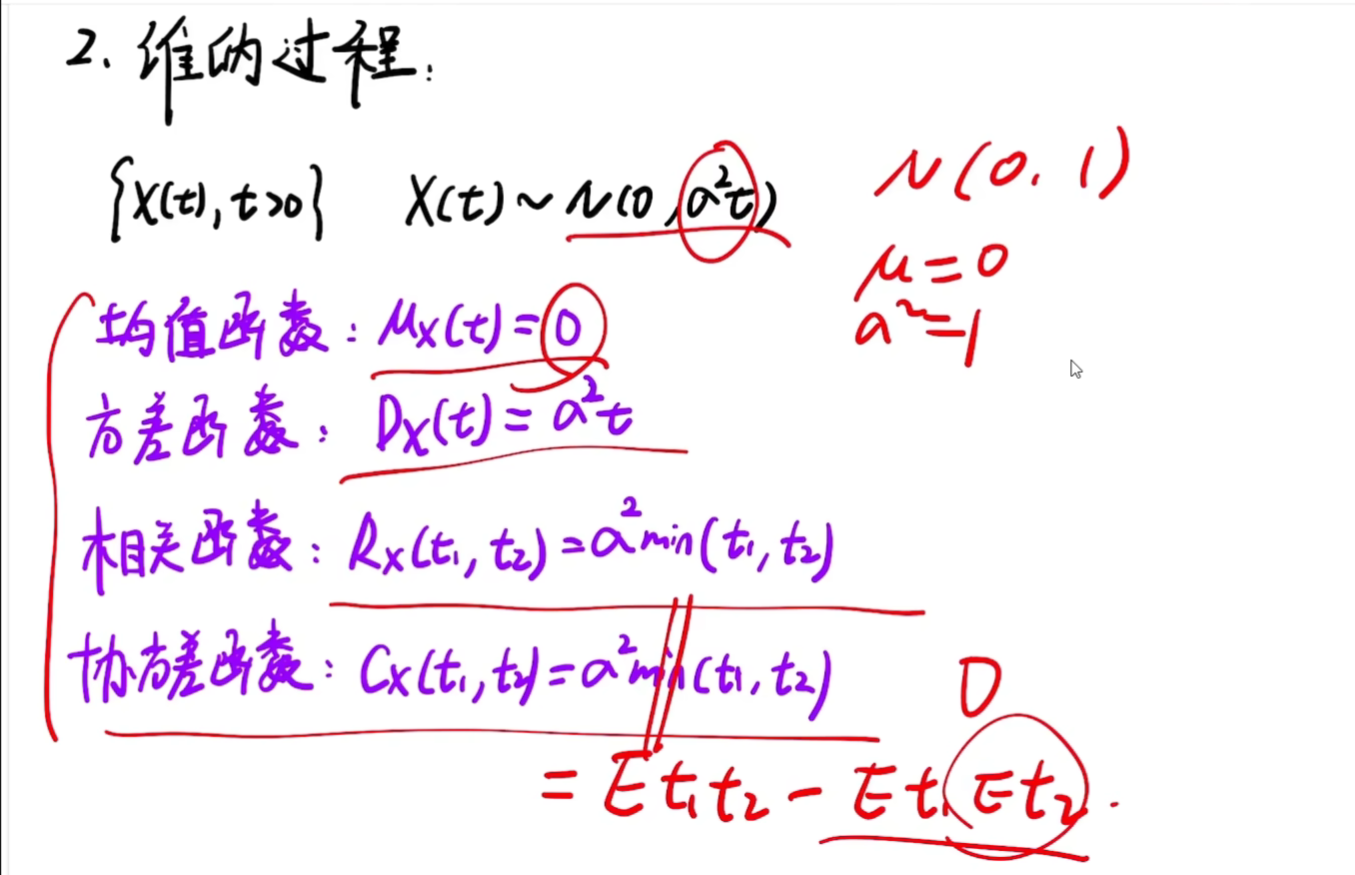 2、维纳过程:
{X(t), t>0} X(t)~N(0, a²t)
N(0, 1)
μ=0
a²=1
均值函数: μx(t)=0
方差函数: Dx(t)=a²t
相关函数: Rx(t₁, t₂)=a²min(t₁, t₂)
协方差函数: Cx(t₁, t₂)=a²min(t₁, t₂)
0
= Et₁t₂ - Et₁Et₂.